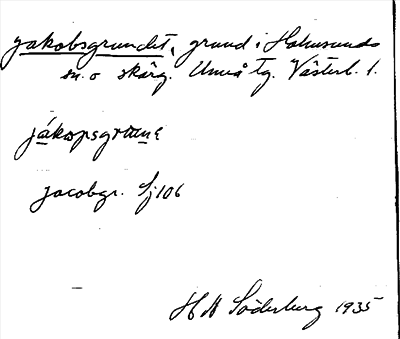 Jakobsgrundet, grund i Holmsunds
sn. o skärg. Umeå tg. Västerb. l.
jákopsgrʉnɛ
Jacobgr. Sj 106
H A Söderberg 1935